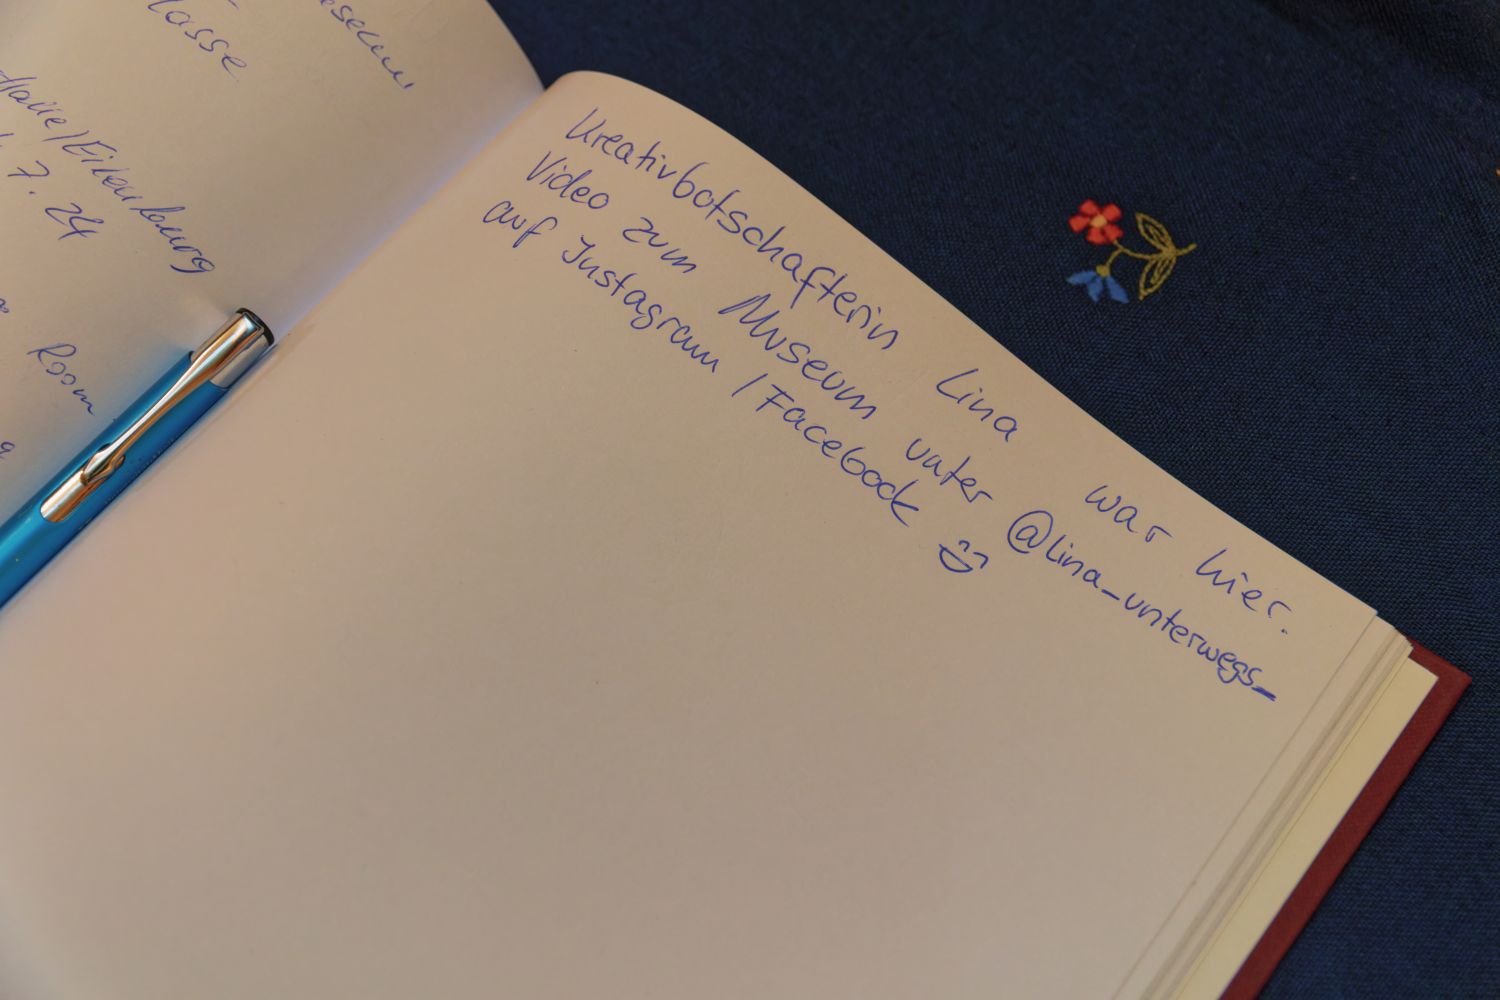 Tasse
Halle/Eilenburg
7. 24
Room
Kreativbotschafterin Lina war hier.
Video zum Museum unter @lina_unterwegs_
auf Instagram / Facebook